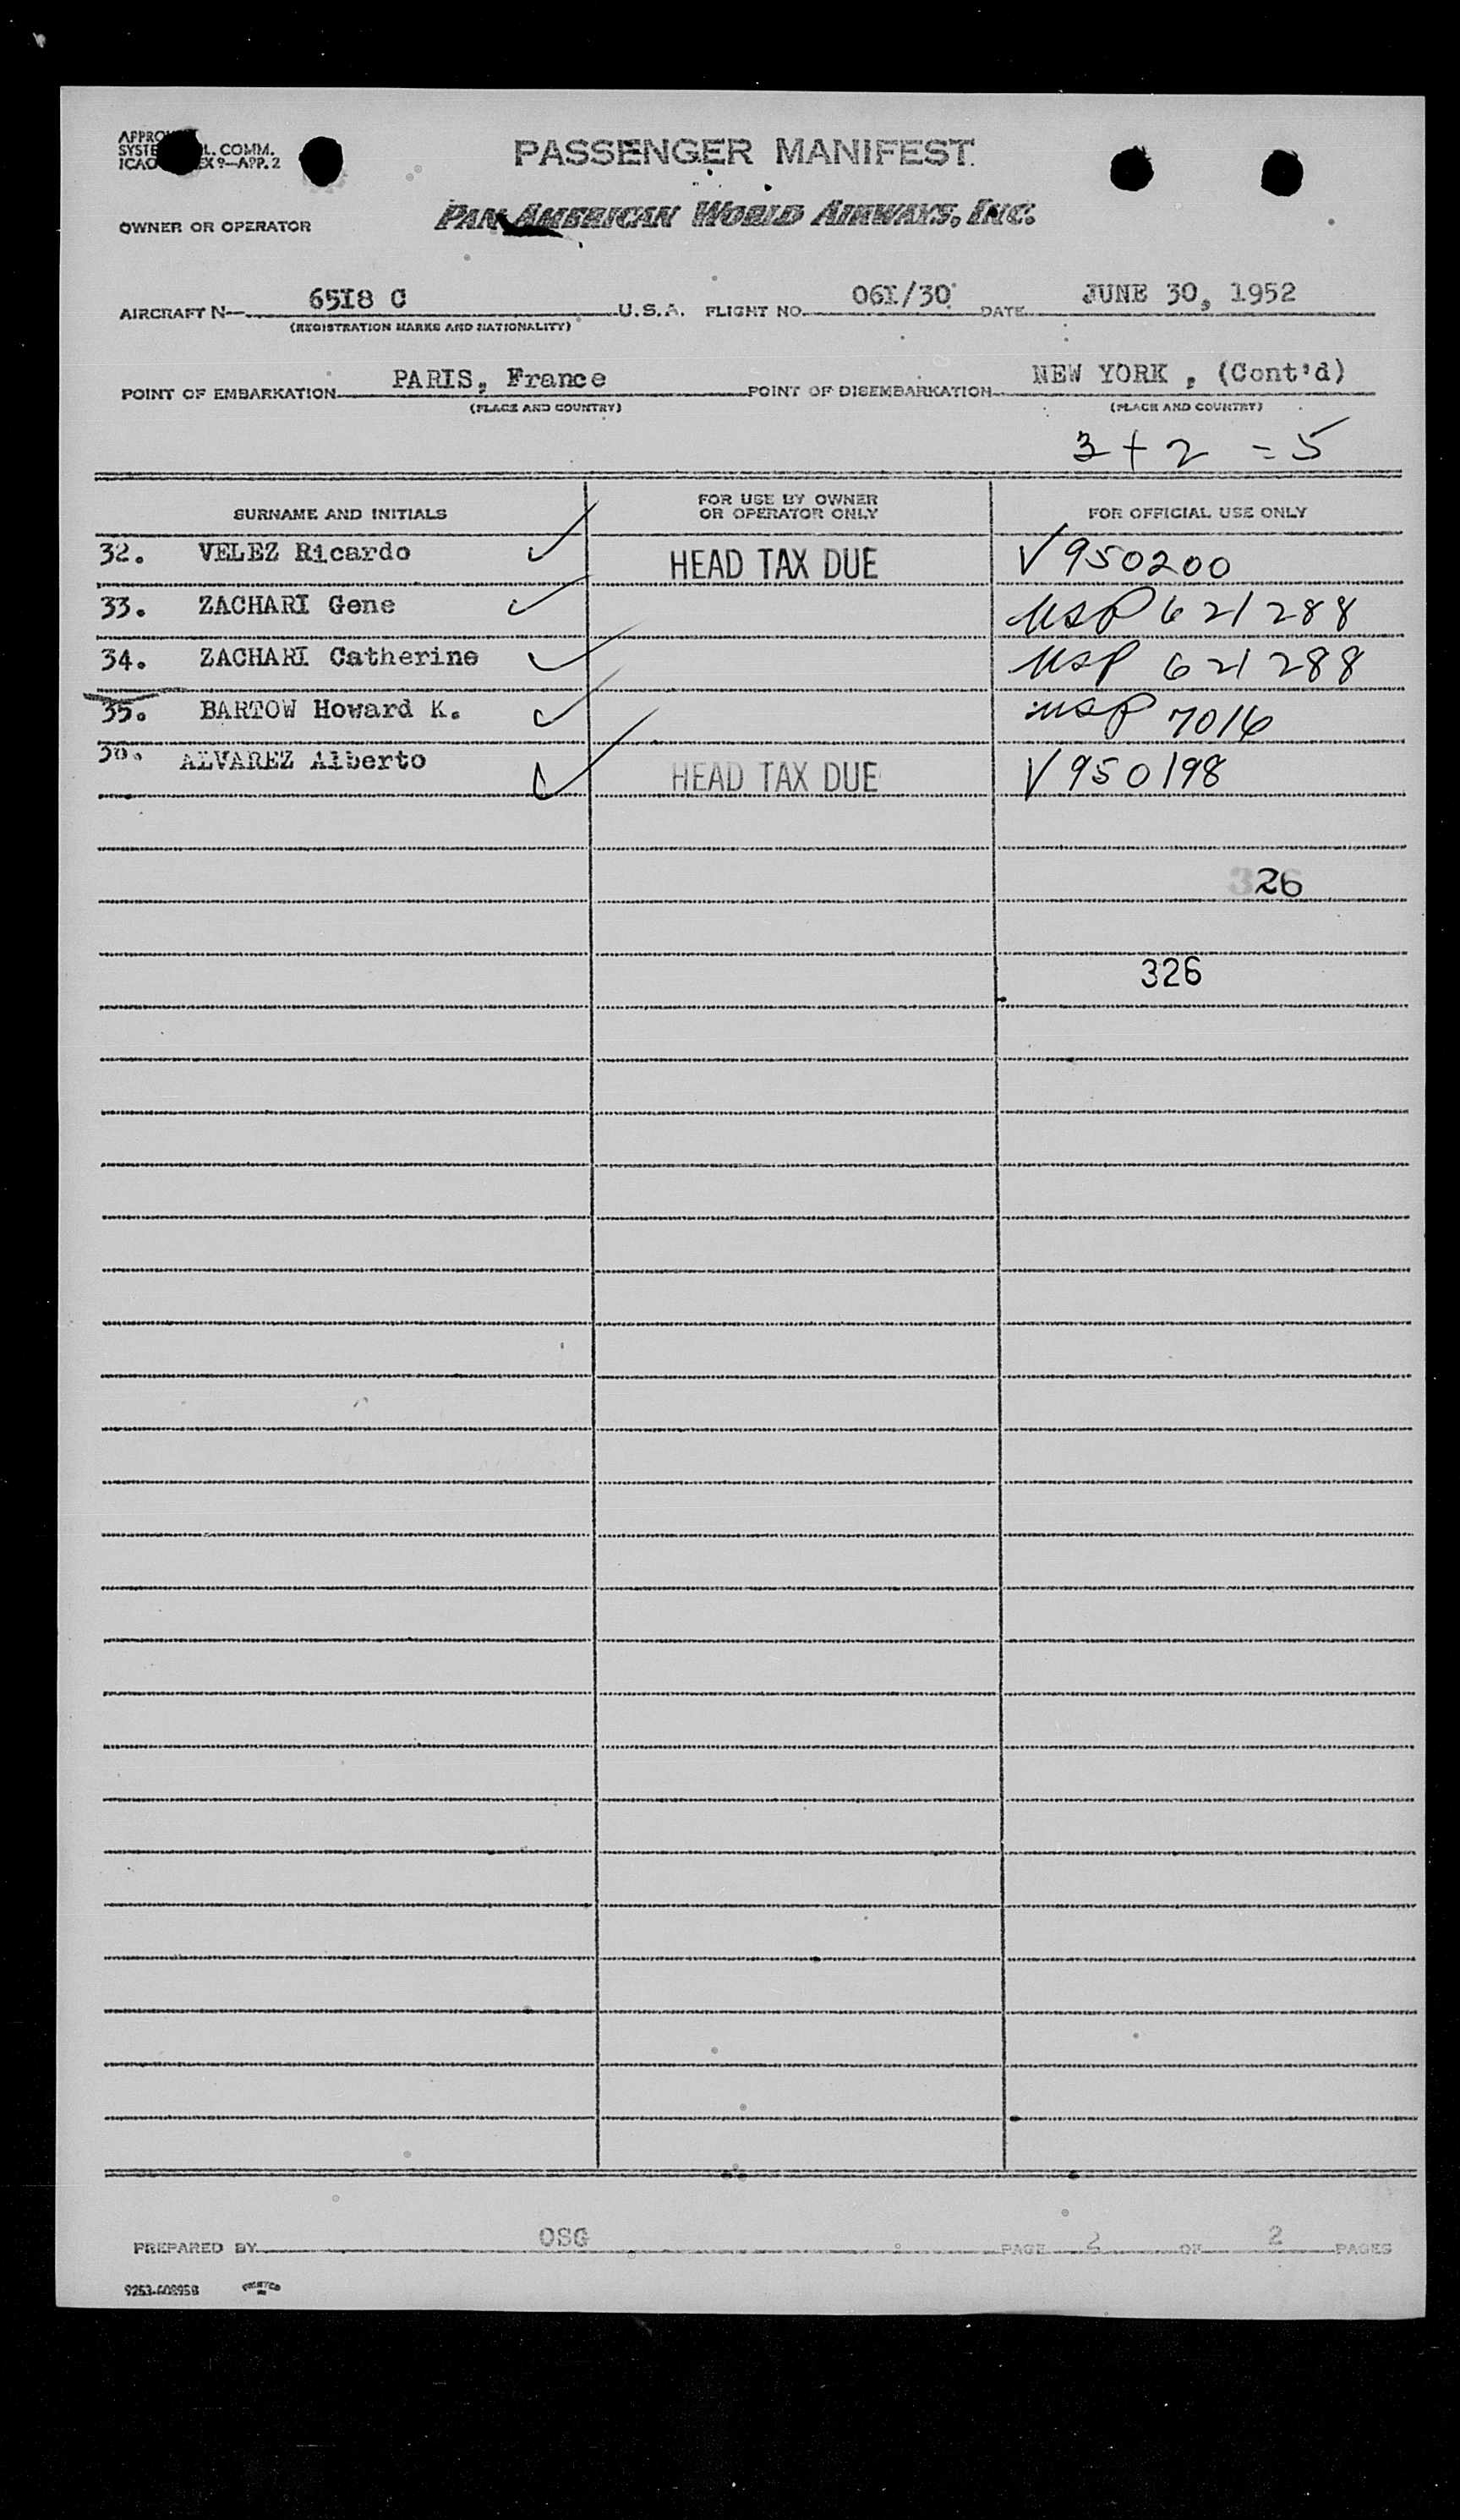 PASSENGER MANIFEST
L. COMM.
9—APP. 2
OWNER OR OPERATOR
PAN AMERICAN WORLD AIRWAYS, INC.
AIRCRAFT N— 65I8 C U.S.A. FLIGHT NO. 06I/30 DATE JUNE 30, 1952
(REGISTRATION MARKS AND NATIONALITY)
POINT OF EMBARKATION PARIS, France POINT OF DISEMBARKATION NEW YORK , (Cont'd)
(PLACE AND COUNTRY) (PLACE AND COUNTRY)
3 + 2 = 5
SURNAME AND INITIALS FOR USE BY OWNER OR OPERATOR ONLY FOR OFFICIAL USE ONLY
32. VELEZ Ricardo HEAD TAX DUE V 950200
33. ZACHARI Gene USP 621288
34. ZACHARI Catherine USP 621288
35. BARTOW Howard K. USP 7016
ALVAREZ Alberto HEAD TAX DUE V 950198
326
326
PREPARED BY OSG PAGE 2 OF 2 PAGES